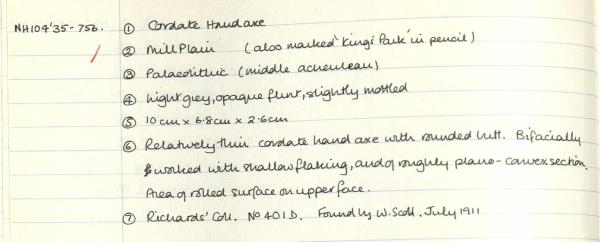 NH104'35-756. ① Cordate Handaxe
② Mill Plain (also marked 'King's Park' in pencil)
③ Palaeolithic (middle acheulean)
④ Light grey, opaque flint, slightly mottled
⑤ 10cm x 6.8cm x 2.6cm
⑥ Relatively thin cordate hand axe with rounded butt. Bifacially
worked with shallow flaking, and of roughly plano-convex section.
Area of rolled surface on upper face.
⑦ Richards' Coll. No 401D. Found by W. Scott. July 1911